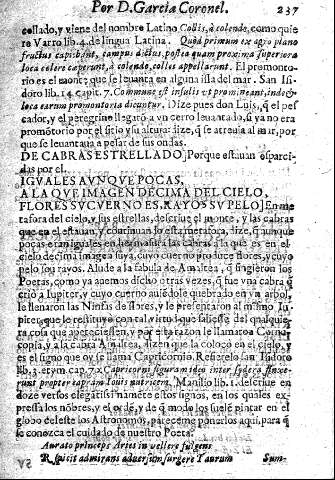 Por D. Garcia Coronel. 237
collado, y viene del nombre Latino Collis, à colendo, como quiere
re Varro lib. 4. de lingua Latina. Quòd primum ex agro plano
fructus capiebant, campus dictus, postea quam proxima superiora
loca colere cæperunt, à colendo, colles appellarunt. El promonto-
rio es el monte que se leuanta en alguna isla del mar. San Isi-
doro lib. 14. capit. 7. Commune est insulis ut promineant, inde &
loca earum promontoria dicuntur. Dize pues don Luis, q̃ el pes
cador, y el peregrino llegarõ a vn cerro leuantado, si ya no era
promõtorio por el sitio y su altura: dize, q̃ se atreuia al mar, por
que se leuantaua a pesar de sus ondas.
DE CABRAS ESTRELLADO, Porque estauan esparci-
das por el.
IGVALES AVNQVE POCAS,
A LA QVE IMAGEN DECIMA DEL CIELO,
FLORES SV CVERNO ES, RAYOS SV PELO] En me
tafora del cielo, y sus estrellas, descriue el monte, y las cabras
que en el estauan, y continuando esta metafora, dize, q̃ aunque
pocas eran iguales en hermosura las cabras a la que es en el
cielo decima imagẽ suya, cuyo cuerno produce flores, y cuyo
pelo son rayos. Alude a la fabula de Amaltea, q̃ fingieron los
Poetas, como ya auemos dicho otras vezes, q̃ fue vna cabra q̃
criò a Iupiter, y cuyo cuerno auiẽdole quebrado en vn arbol,
le llenaron las Ninfas de flores, y le presentaron al mismo Iu-
piter, que le restituyò con tal virtud que saliesse del qualquie-
ra cosa que apeteciessen, y por esta razon le llamaron Cornu-
copia, y a la cabra Amaltea, dizen que la colocò en el cielo, y
es el signo que oy se llama Capricornio. Refierelo san Isidoro
lib. 3. etym. cap. 7. Capricorni figuram ideo inter sydera finxe-
runt propter capram Iouis nutricem. Manilio lib. 1. descriue en
doze versos elegãtissimamẽte estos signos, en los quales ex-
pressa los nõbres, y el ordẽ, y de q̃ modo los suele pintar en el
globo celeste los Astronomos, parecème ponerlos aqui, para q̃
se conozca el cuidado de nuestro Poeta.
Aurato princeps Aries in vellere fulgens
Respicit admirans aduersum surgere Taurum
Sum-